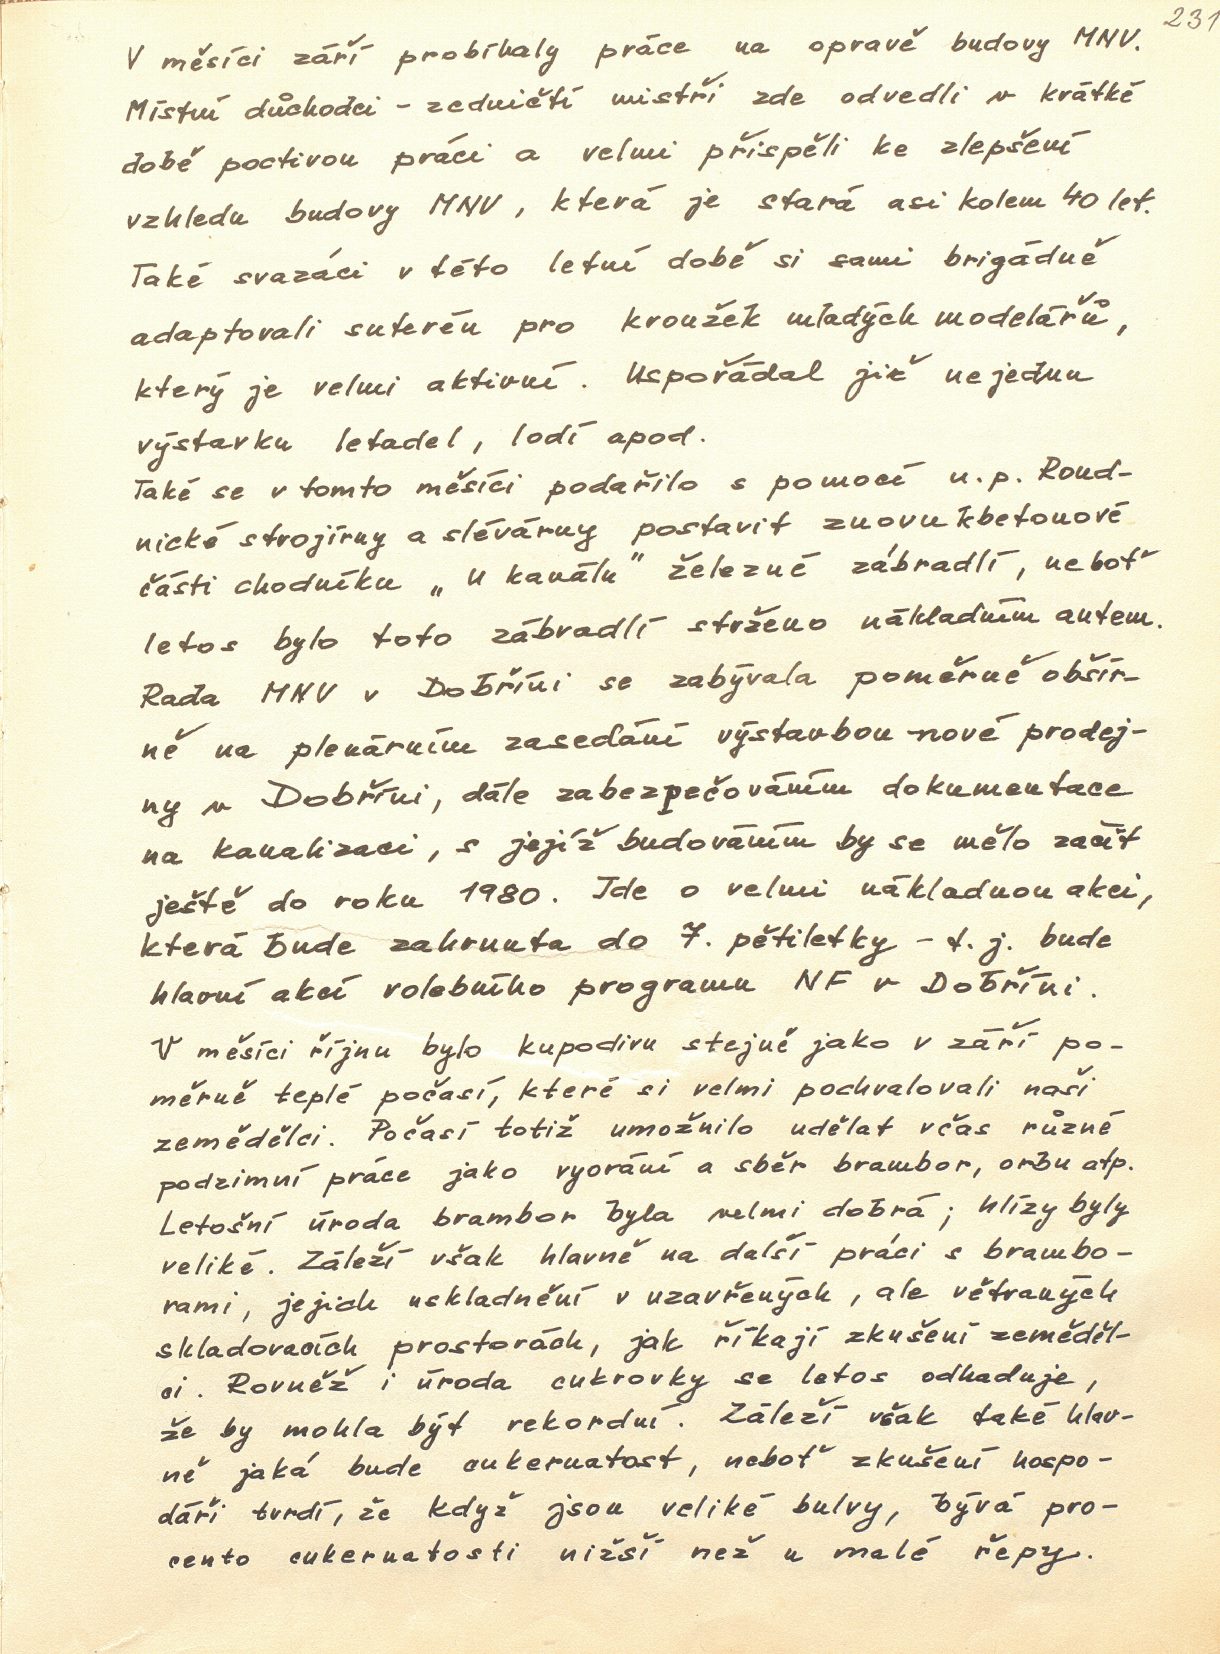 231
V měsíci září probíhaly práce na opravě budovy MNV.
Místní důchodci - zedničtí mistři zde odvedli v krátké
době poctivou práci a velmi přispěli ke zlepšení
vzhledu budovy MNV, která je stará asi kolem 40 let.
Také svazáci v této letní době si sami brigádně
adaptovali suterén pro kroužek mladých modelářů,
který je velmi aktivní. Uspořádal již nejednu
výstavku letadel, lodí apod.
Také se v tomto měsíci podařilo s pomocí n. p. Roud-
nické strojírny a slévárny postavit znovu kbetonové
části chodníku „U kanálu" železné zábradlí, neboť
letos bylo toto zábradlí strženo nákladním autem.
Rada MNV v Dobříni se zabývala poměrně obšír-
ně na plenárním zasedání výstavbou nové prodej-
ny v Dobříni, dále zabezpečováním dokumentace
na kanalizaci, s jejíž budováním by se mělo začít
ještě do roku 1980. Jde o velmi nákladnou akci,
která bude zahrnuta do 7. pětiletky - t. j. bude
hlavní akcí volebního programu NF v Dobříni.
V měsíci říjnu bylo kupodivu stejně jako v září po-
měrně teplé počasí, které si velmi pochvalovali naši
zemědělci. Počasí totiž umožnilo udělat včas různé
podzimní práce jako vyorání a sběr brambor, orbu atp.
Letošní úroda brambor byla velmi dobrá; hlízy byly
veliké. Záleží však hlavně na další práci s brambo-
rami, jejich uskladnění v uzavřených, ale větraných
skladovacích prostorách, jak říkají zkušení zeměděl-
ci. Rovněž i úroda cukrovky se letos odhaduje,
že by mohla být rekordní. Záleží však také hlav-
ně jaká bude cukernatost, neboť zkušení hospo-
dáři tvrdí, že když jsou veliké bulvy, bývá pro-
cento cukernatosti nižší než u malé řepy.